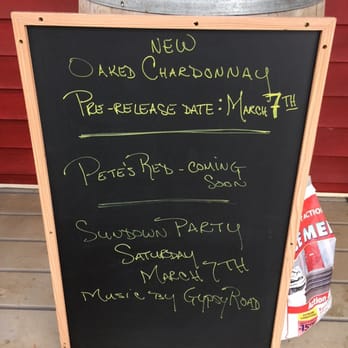 NEW
OAKED CHARDONNAY
PRE-RELEASE DATE: MARCH 7TH
PETE'S RED - COMING
SOON
SUNDOWN PARTY
SATURDAY
MARCH 7TH
MUSIC BY GYPSYROAD
ACTION